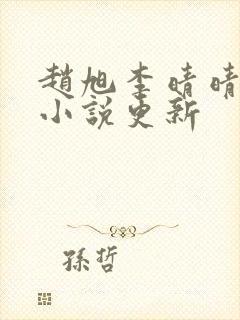 趙旭李晴晴
小說更新
孫哲